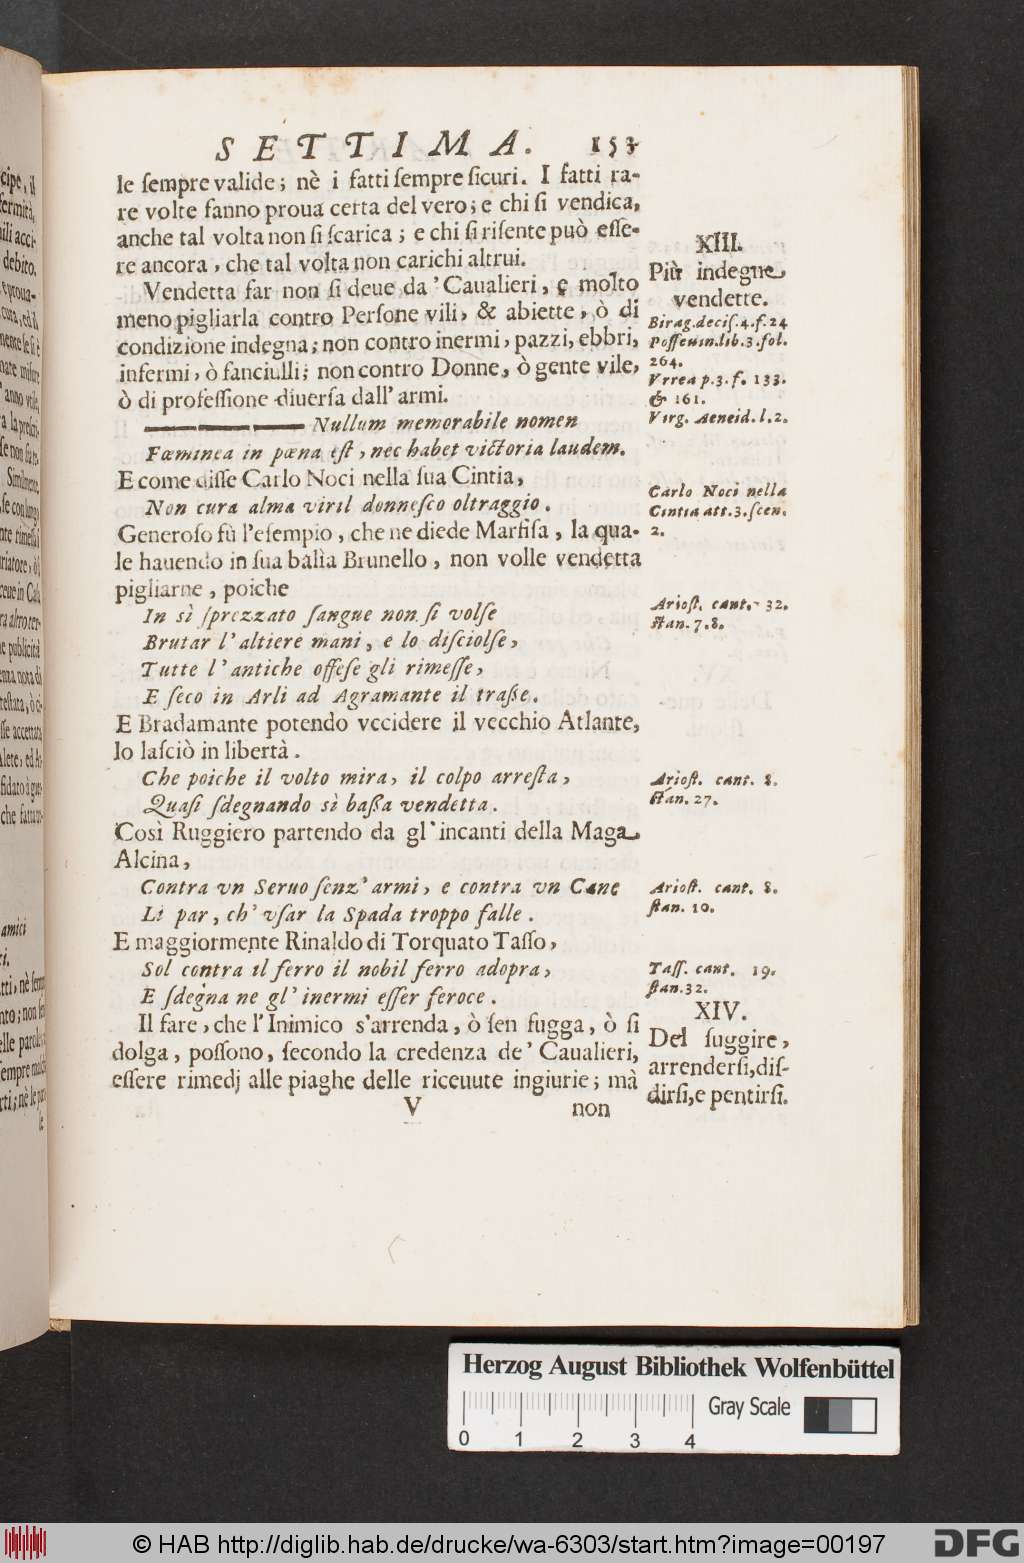 SETTIMA. 153
le ſempre valide; nè i fatti ſempre ſicuri. I fatti ra-
re volte fanno proua certa del vero; e chi ſi vendica,
anche tal volta non ſi ſcarica; e chi ſi riſente può eſſe-
re ancora, che tal volta non carichi altrui.
Vendetta far non ſi deue da' Caualieri, e molto
meno pigliarla contro Perſone vili, & abiette, ò di
condizione indegna; non contro inermi, pazzi, ebbri,
infermi, ò fanciulli; non contro Donne, ò gente vile,
ò di profeſſione diuerſa dall' armi.
——— Nullum memorabile nomen
Fœminea in pœna eſt, nec habet victoria laudem.
E come diſſe Carlo Noci nella ſua Cintia,
Non cura alma viril donneſco oltraggio.
Generoſo fù l'eſempio, che ne diede Marfiſa, la qua-
le hauendo in ſua balìa Brunello, non volle vendetta
pigliarne, poiche
In sì ſprezzato ſangue non ſi volſe
Brutar l' altiere mani, e lo diſciolſe,
Tutte l' antiche offeſe gli rimeſſe,
E ſeco in Arli ad Agramante il traße.
E Bradamante potendo vccidere il vecchio Atlante,
lo laſciò in libertà.
Che poiche il volto mira, il colpo arreſta,
Quaſi ſdegnando sì baßa vendetta.
Così Ruggiero partendo da gl' incanti della Maga
Alcina,
Contra vn Seruo ſenz' armi, e contra vn Cane
Lì par, ch' vſar la Spada troppo falle.
E maggiormente Rinaldo di Torquato Taſſo,
Sol contra il ferro il nobil ferro adopra,
E ſdegna ne gl' inermi eſſer feroce.
Il fare, che l' Inimico s'arrenda, ò ſen fugga, ò ſi
dolga, poſſono, ſecondo la credenza de' Caualieri,
eſſere rimedj alle piaghe delle riceuute ingiurie; mà
V non
XIII.
Più indegne
vendette.
Birag.deciſ.4.f.24
Poſſeuin.lib.3.fol.
264.
Vrrea p.3.f. 133.
& 161.
Virg. Aeneid.l.2.
Carlo Noci nella
Cintia att.3.ſcen.
2.
Arioſt. cant. 32.
ſtan.7.8.
Arioſt. cant. 8.
ſtan. 27.
Arioſt. cant. 8.
ſtan. 10.
Taſſ. cant. 19.
ſtan.32.
XIV.
Del fuggire,
arrenderſi,diſ-
dirſi,e pentirſi.
Herzog August Bibliothek Wolfenbüttel
Gray Scale
0 1 2 3 4
© HAB http://diglib.hab.de/drucke/wa-6303/start.htm?image=00197
DFG